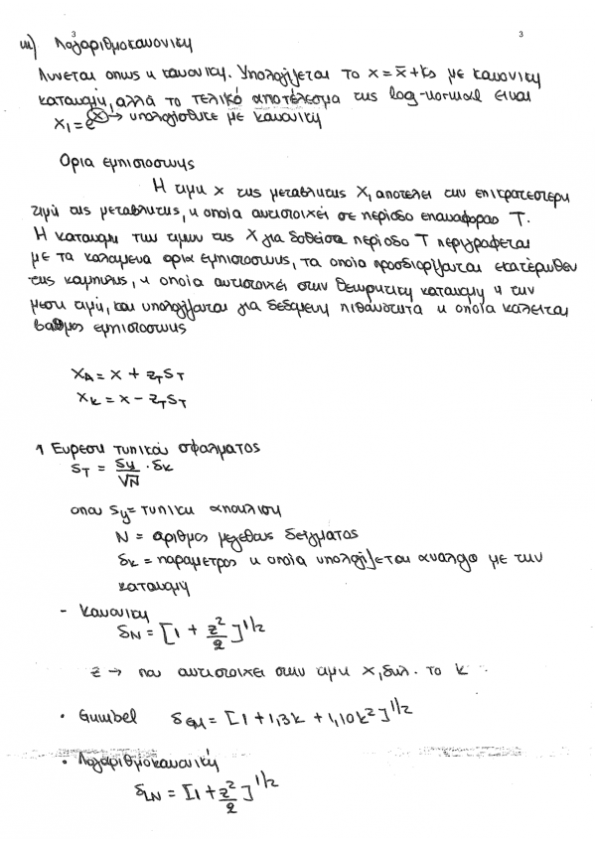 3
3
iii) Λογαριθμοκανονικη
Λυνεται οπως η κανονικη. Υπολογιζεται το x = x̄ + ks με κανονικη
κατανομή, αλλά το τελικό αποτέλεσμα της log-normal ειναι
x₁ = eˣ → υπολογισθηκε με κανονικη
Ορια εμπιστοσυνης
Η τιμη x της μεταβλητης X, αποτελει την επικρατεστερη
τιμή της μεταβλητης, η οποία αντιστοιχεί σε περίοδο επαναφορας T.
Η κατανομη των τιμων της X για δοθείσα περίοδο T περιγραφεται
με τα καλουμενα ορια εμπιστοσυνης, τα οποία προσδιορίζονται εκατέρωθεν
της καμπυλης, η οποία αντιστοιχεί στην θεωρητικη κατανομη η την
μεση τιμή, και υπολογίζονται για δεδομενη πιθανοτητα η οποία καλειται
βαθμος εμπιστοσυνης
x_A = x + z_T S_T
x_K = x - z_T S_T
1 Ευρεση τυπικού σφαλματος
S_T = Sy/√N · δ_k
οπου Sy = τυπικη αποκλιση
N = αριθμος μεγεθους δειγματος
δ_k = παραμετρος η οποία υπολογίζεται αναλογα με την
κατανομη
- Κανονικη
δ_N = [1 + z²/2]^1/2
z → που αντιστοιχει στην τιμη x, δηλ. το k
• Gumbel δ_GM = [1 + 1,3k + 1,10k²]^1/2
• Λογαριθμοκανονική
δ_LN = [1 + z²/2]^1/2